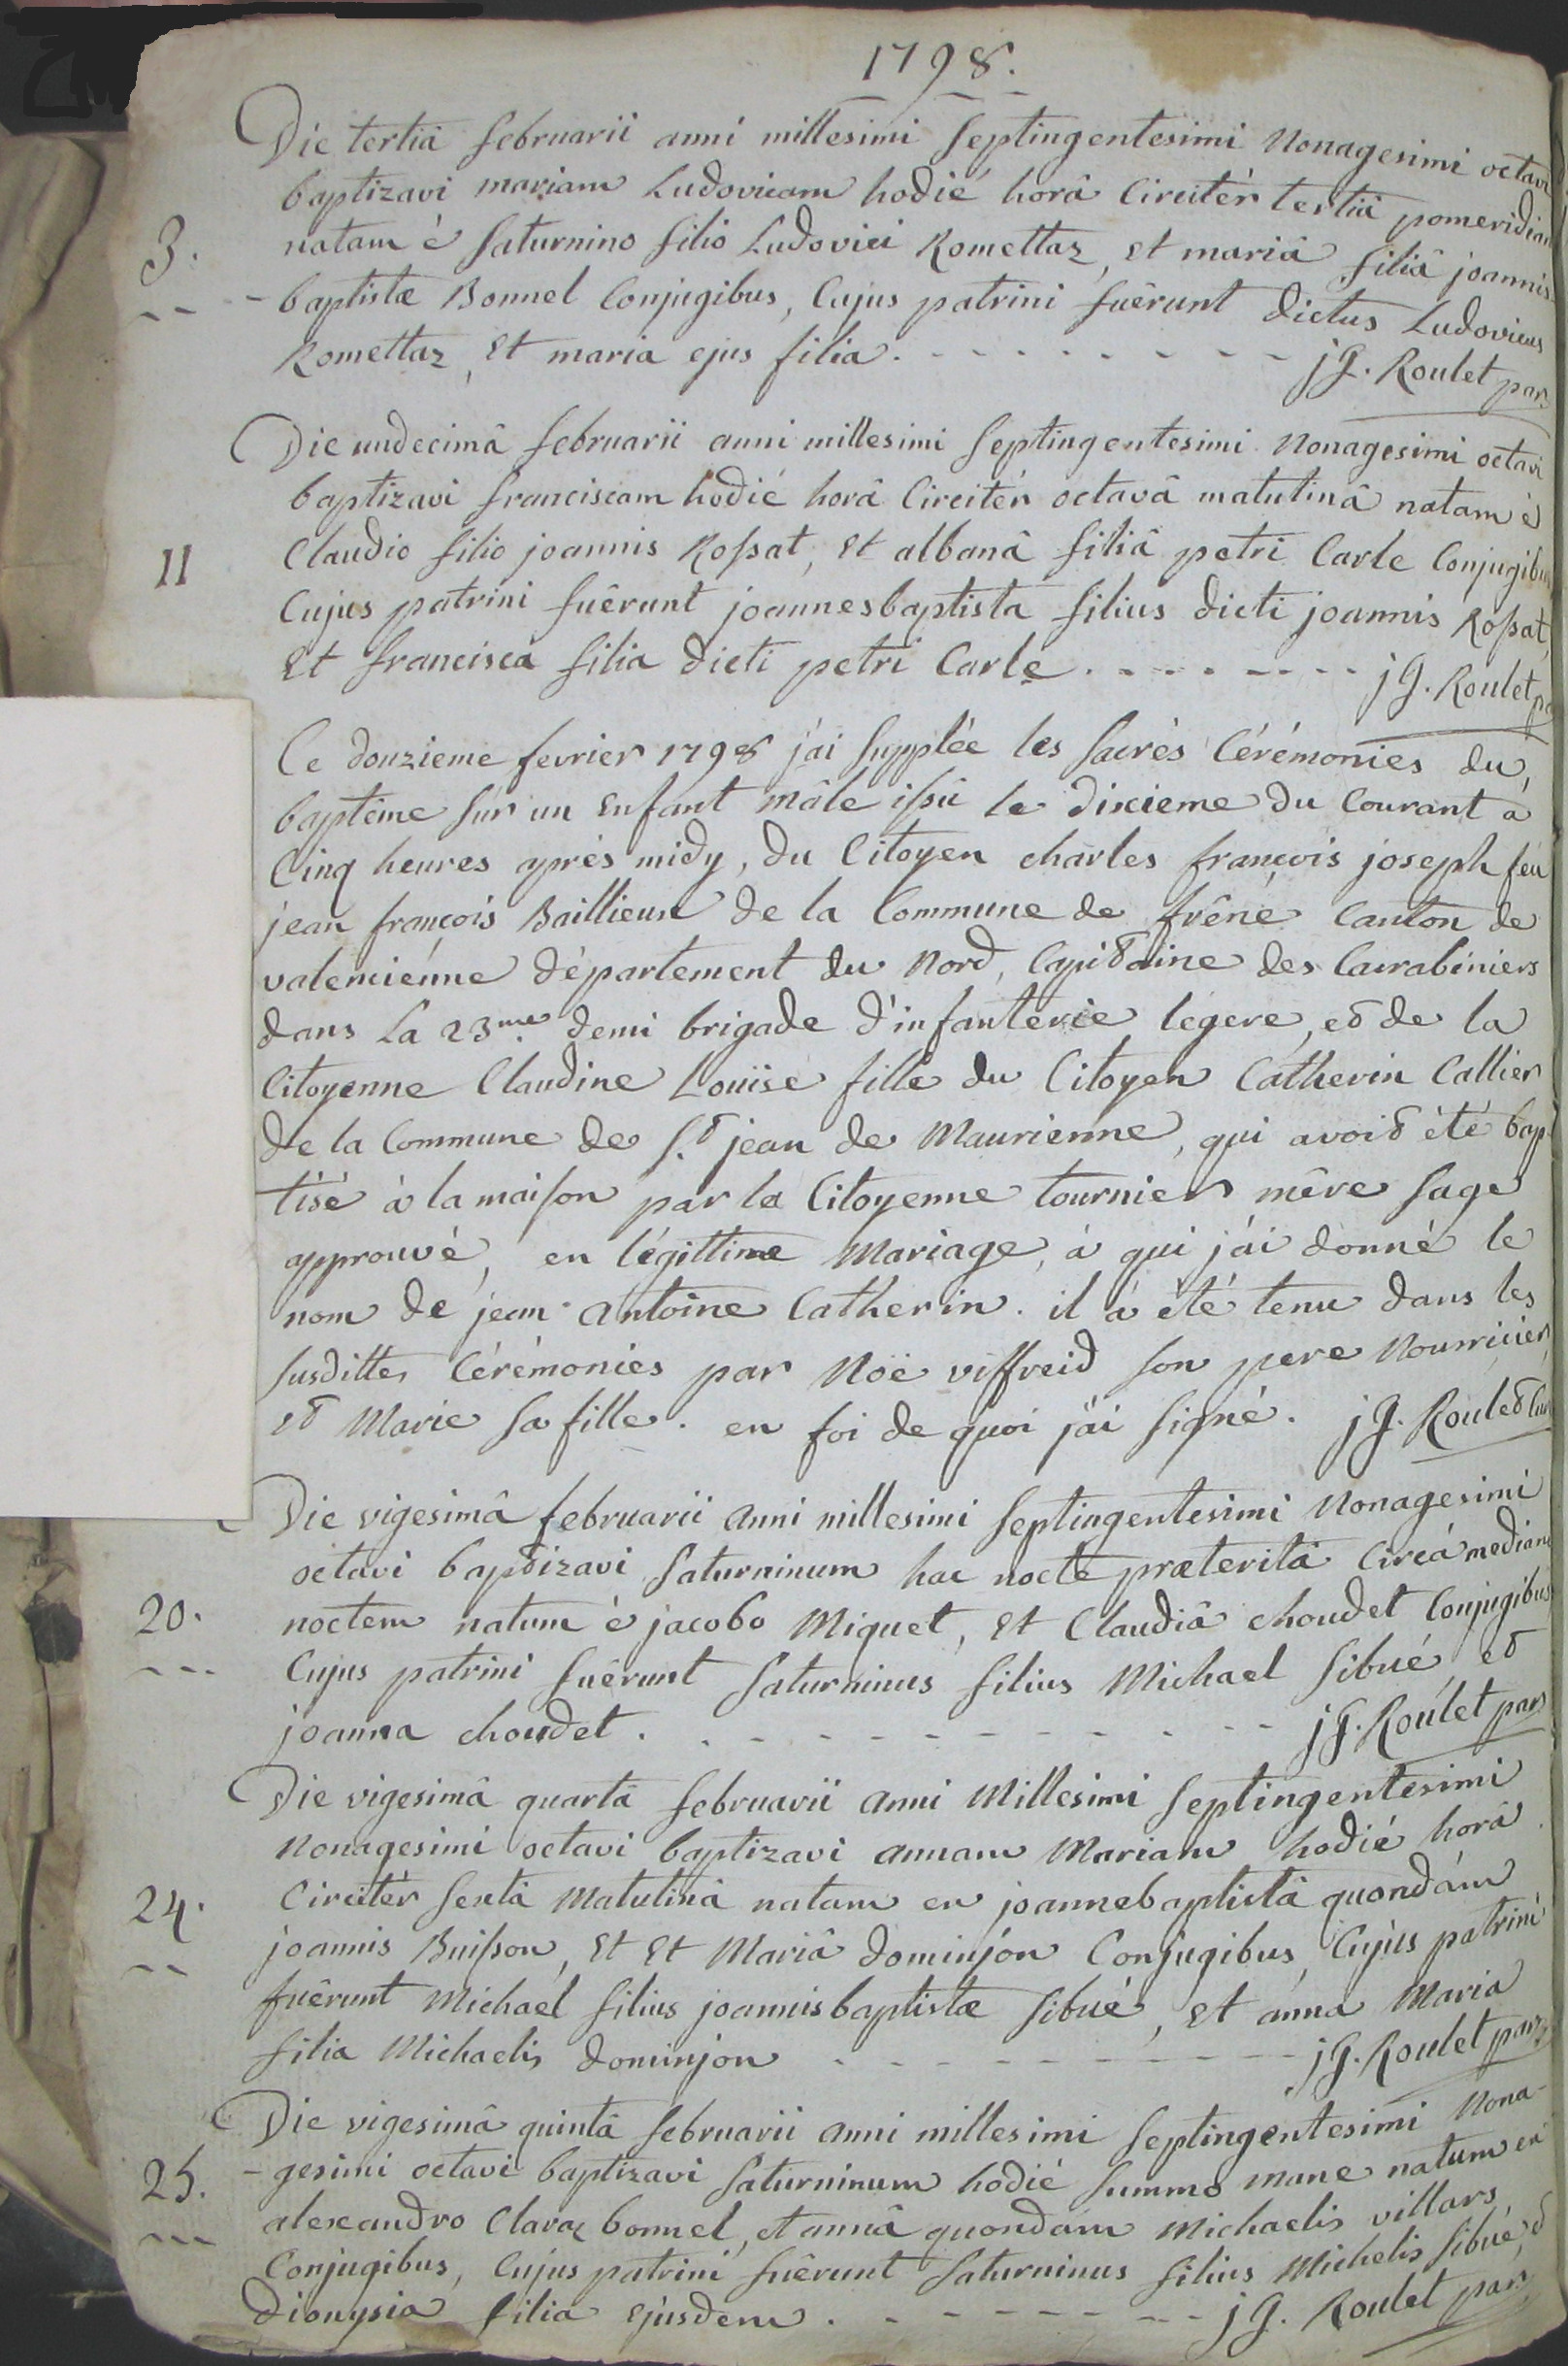 1798.
Die tertiâ februarii anni millesimi Septingentesimi Nonagesimi octavi
baptizavi mariam Ludovicam hodiè horâ Circitèr tertiâ pomeridian
3. natam è Saturnino filio Ludovici Romettaz, et mariâ filiâ joannis
- baptistæ Bonnel Conjugibus, Cujus patrini fuêrunt dictus Ludovicus
Romettaz, Et maria ejus filia. - - - - - - - - - jG. Roulet par
Die undecimâ februarii anni millesimi Septingentesimi Nonagesimi octavi
baptizavi franciscam hodié horâ Circitèr octavâ matutinâ natam è
11 Claudio filio joannis Rossat, Et albanâ filiâ petri Carle Conjugibus
Cujus patrini fuêrunt joannesbaptista filius dicti joannis Rossat,
Et francisca filia dicti petri Carle. - - - - - - - - jG. Roulet pa
Ce douzieme fevrier 1798 j'ai Supplée les Sacrès Cérémonies du
baptême Sur un Enfant mâle issü le dixieme du Courant à
Cinq heures après midy, du Citoyen charles françois joseph feu
jean françois Baillieux de la Commune de frêne Canton de
valencienne département du Nord, Capitaine des Carrabiniers
dans La 23.me demi brigade d'infanterie légere, et de la
Citoyenne Claudine Loüise fille du Citoyen Catherin Callier
de la Commune de S.t jean de Maurienne, qui avoit été bap
tisé à la maison par la Citoyenne tournier mêre Sage
approuvè, en légittime Mariage, à qui j'ai donné le
nom de jean Antoine Catherin. il à été tenu dans les
Susdittes Cérémonies par Noë viffreid Son pere Nourricier,
et Marie Sa fille. en foi de quoi j'ai Signé. jG. Roulet Cur
Die vigesimâ februarii Anni millesimi Septingentesimi Nonagesimi
octavi baptizavi Saturninum hac nocte præteritâ Circà mediam
20. noctem natum è jacobo Miquet, Et Claudiâ choudet Conjugibus
Cujus patrini fuêrunt Saturninus filius Michael Sibué, et
joanna choudet. - - - - - - - - - jG. Roulet par
Die vigesimâ quartâ februarii Anni Millesimi Septingentesimi
Nonagesimi octavi baptizavi Annam Mariam hodié horâ
24. Circitèr Sextâ Matutinâ natam ex joannebaptistâ quondàm
joannis Buisson, Et Et Mariâ dominjon Conjugibus, Cujùs patrini
fuêrunt Michaël filius joannisbaptistæ Sibué, Et anna Maria
filia Michaelis dominjon - - - - - - - - - jG. Roulet par
Die vigesimâ quintâ februarii Anni millesimi Septingentesimi Nona-
25. - gesimi octavi baptizavi Saturninum hodié Summo mane natum ex
alexandro Claraz bonnel, et annâ quondam Michaelis villars,
Conjugibus, Cujus patrini fuêrunt Saturninus filius Michelis Sibué, et
Dionysia filia Ejusdem. - - - - - - - - jG. Roulet par